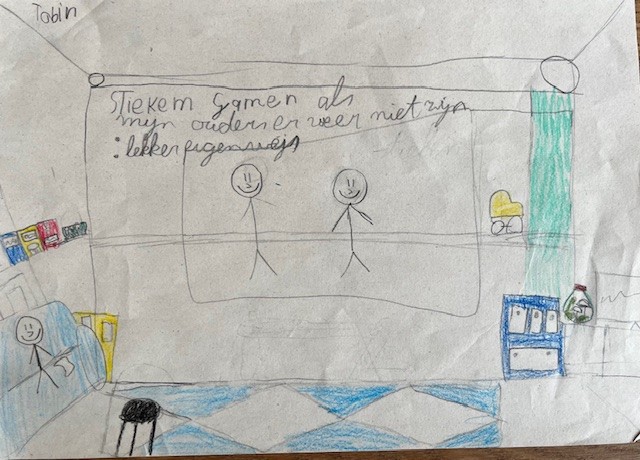 Tobin
Stiekem gamen als
mijn ouders er weer niet zijn
: lekker eigenwijs